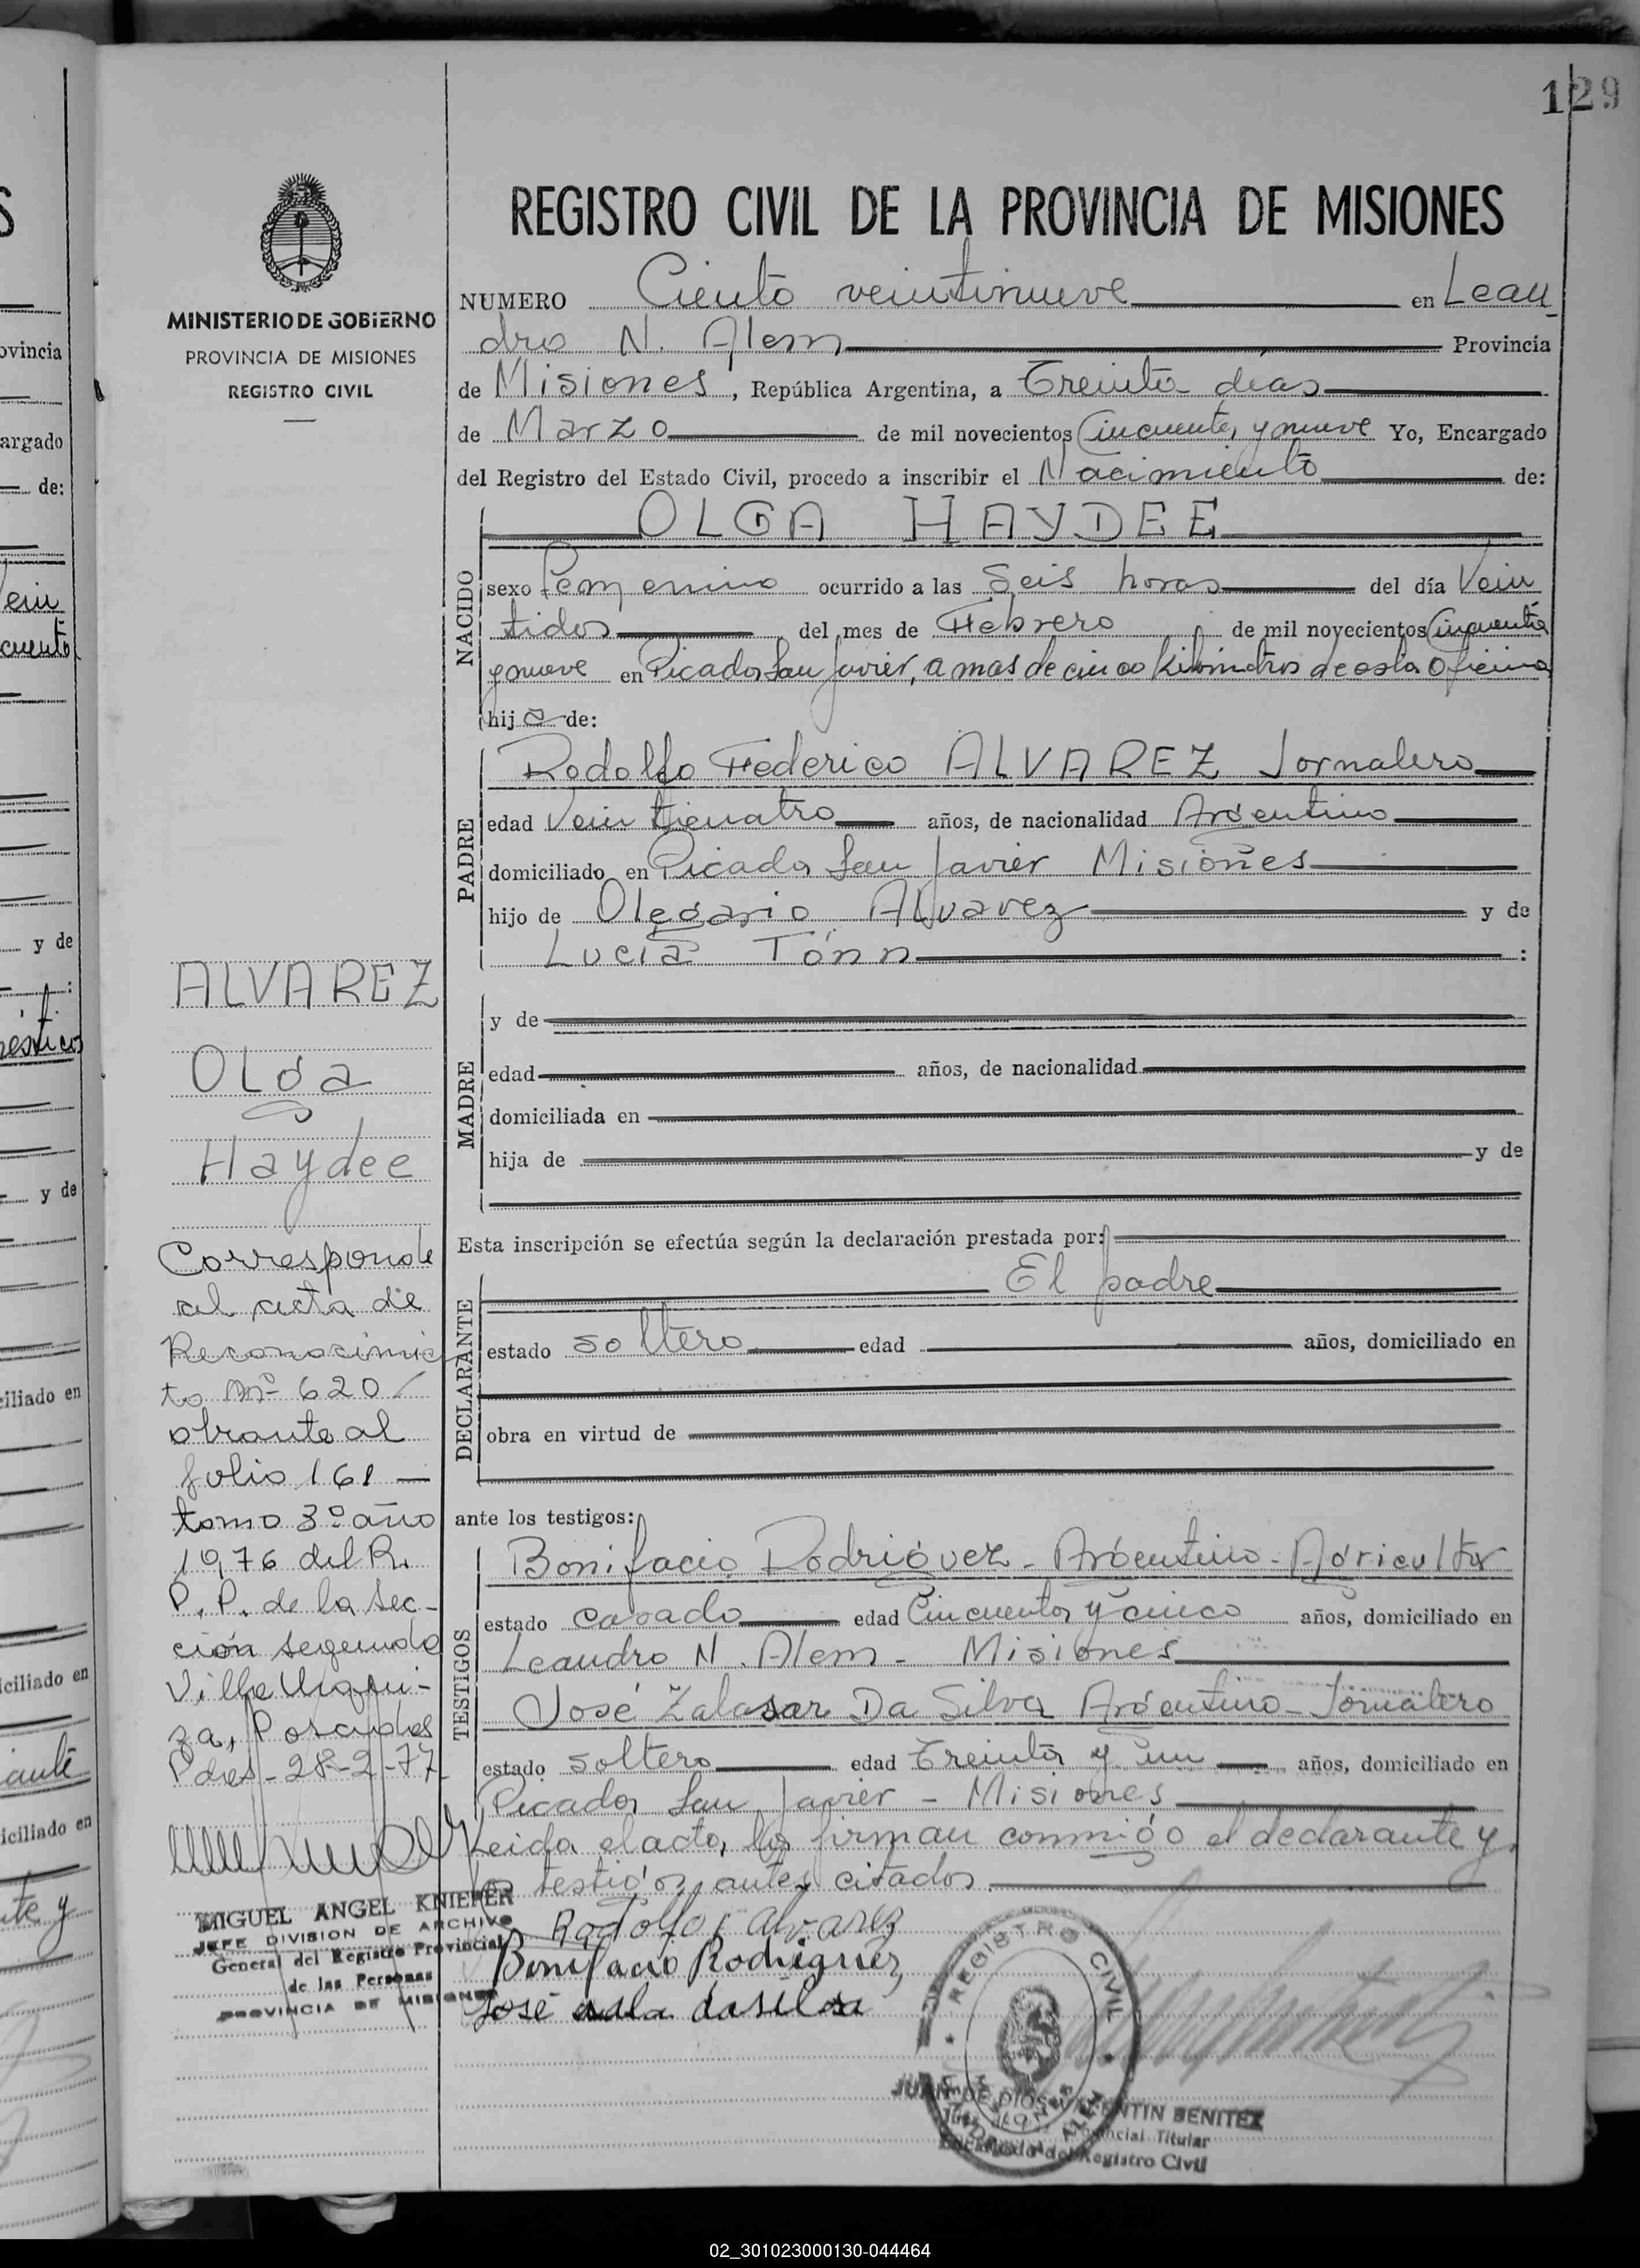 129
REGISTRO CIVIL DE LA PROVINCIA DE MISIONES
MINISTERIO DE GOBIERNO
PROVINCIA DE MISIONES
REGISTRO CIVIL
NUMERO Ciento veintinueve en Lean
dro N. Alem Provincia
de Misiones, República Argentina, a Treinta dias
de Marzo de mil novecientos Cincuenta y nueve Yo, Encargado
del Registro del Estado Civil, procedo a inscribir el Nacimiento de:
OLGA HAYDEE
NACIDO
sexo Femenino ocurrido a las Seis horas del día Vein
tidos del mes de Febrero de mil novecientos Cincuenta
y nueve en Picada San Javier, a mas de cinco Kilómetros de esta Oficina
hija de:
PADRE
Rodolfo Federico ALVAREZ Jornalero
edad Veinticuatro años, de nacionalidad Argentino
domiciliado en Picada San Javier Misiones
hijo de Olegario Alvarez y de
Lucia Tonn :
MADRE
y de
edad años, de nacionalidad
domiciliada en
hija de y de
Esta inscripción se efectúa según la declaración prestada por:
DECLARANTE
El padre
estado soltero edad años, domiciliado en
obra en virtud de
ante los testigos:
TESTIGOS
Bonifacio Rodriguez - Argentino - Agricultor
estado casado edad Cincuenta y cinco años, domiciliado en
Leandro N. Alem - Misiones
José Zalasar Da Silva Argentino - Jornalero
estado soltero edad Treinta y un años, domiciliado en
Picada San Javier - Misiones
Leida el acta, la firman conmigo el declarante y
testigos antes citados
Rodolfo F Alvarez
Bonifacio Rodriguez
José dasilva
REGISTRO CIVIL
JUAN DE DIOS VALENTIN BENITEZ
Titular
Encargado del Registro Civil
ALVAREZ
Olga
Haydee
Corresponde
al acta de
Reconocimie
to Nº 620
obrante al
folio 161
tomo 3º año
1976 del R.
P. P. de la Sec-
ción segunda
Villa Urqui-
za, Posadas
Pdas - 28-2-77
MIGUEL ANGEL KNIEPER
JEFE DIVISION DE ARCHIVO
General del Registro Provincial
de las Personas
PROVINCIA DE MISIONES
02_301023000130-044464